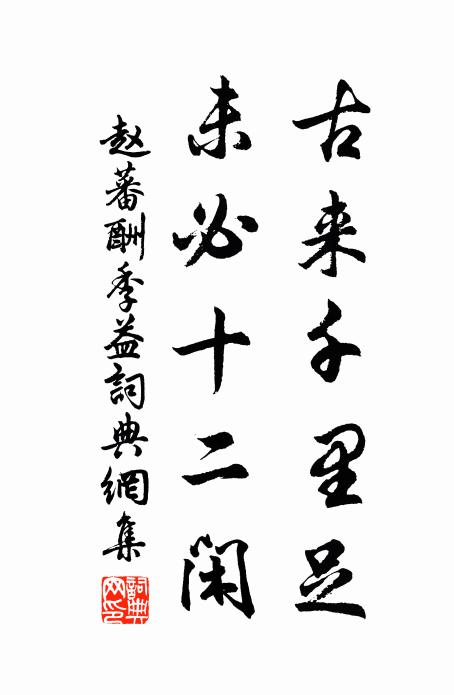 古来千里足
未必十二闲
赵蕃酬季益詞典網集
詞典网印